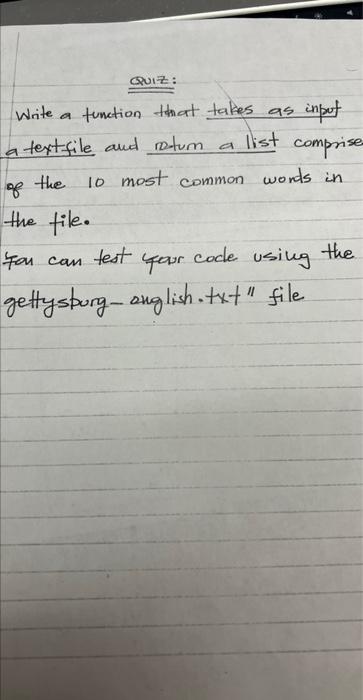 QUIZ:
Write a function that takes as input
a textfile and return a list comprise
of the 10 most common words in
the file.
You can test your code using the
gettysburg-english.txt" file